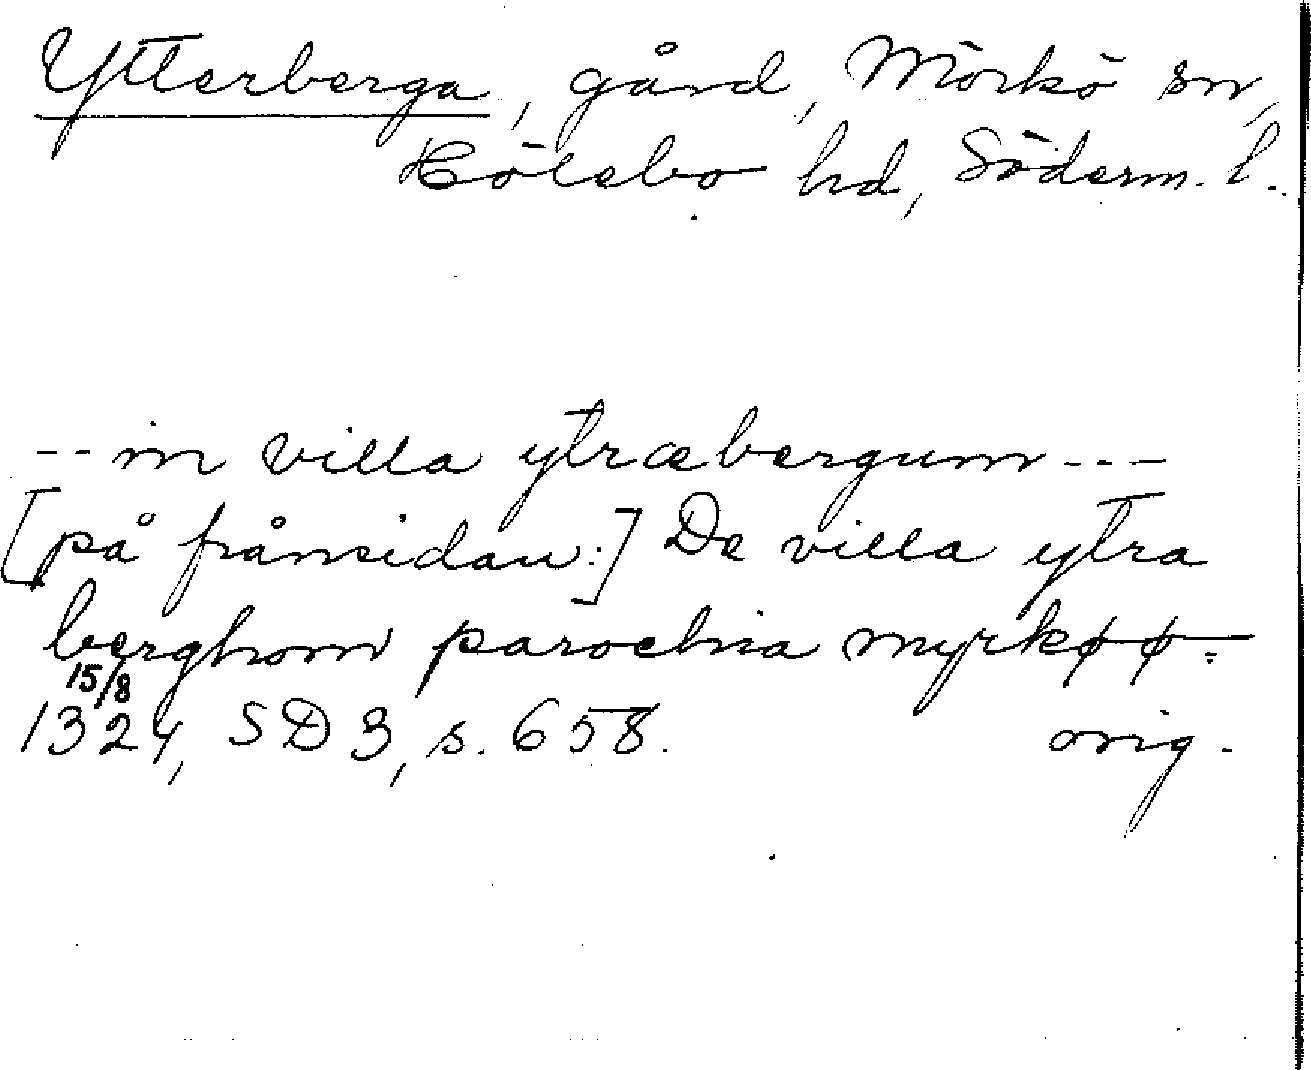 Ytterberga, gård, Mörkö sn,
Hölebo hd, Söderm. l.
-- in villa ytræbergum ---
[på frånsidan:] De villa ytra
berghom parochia myrkøø.
15/8
1324, SD 3, s. 658. orig.